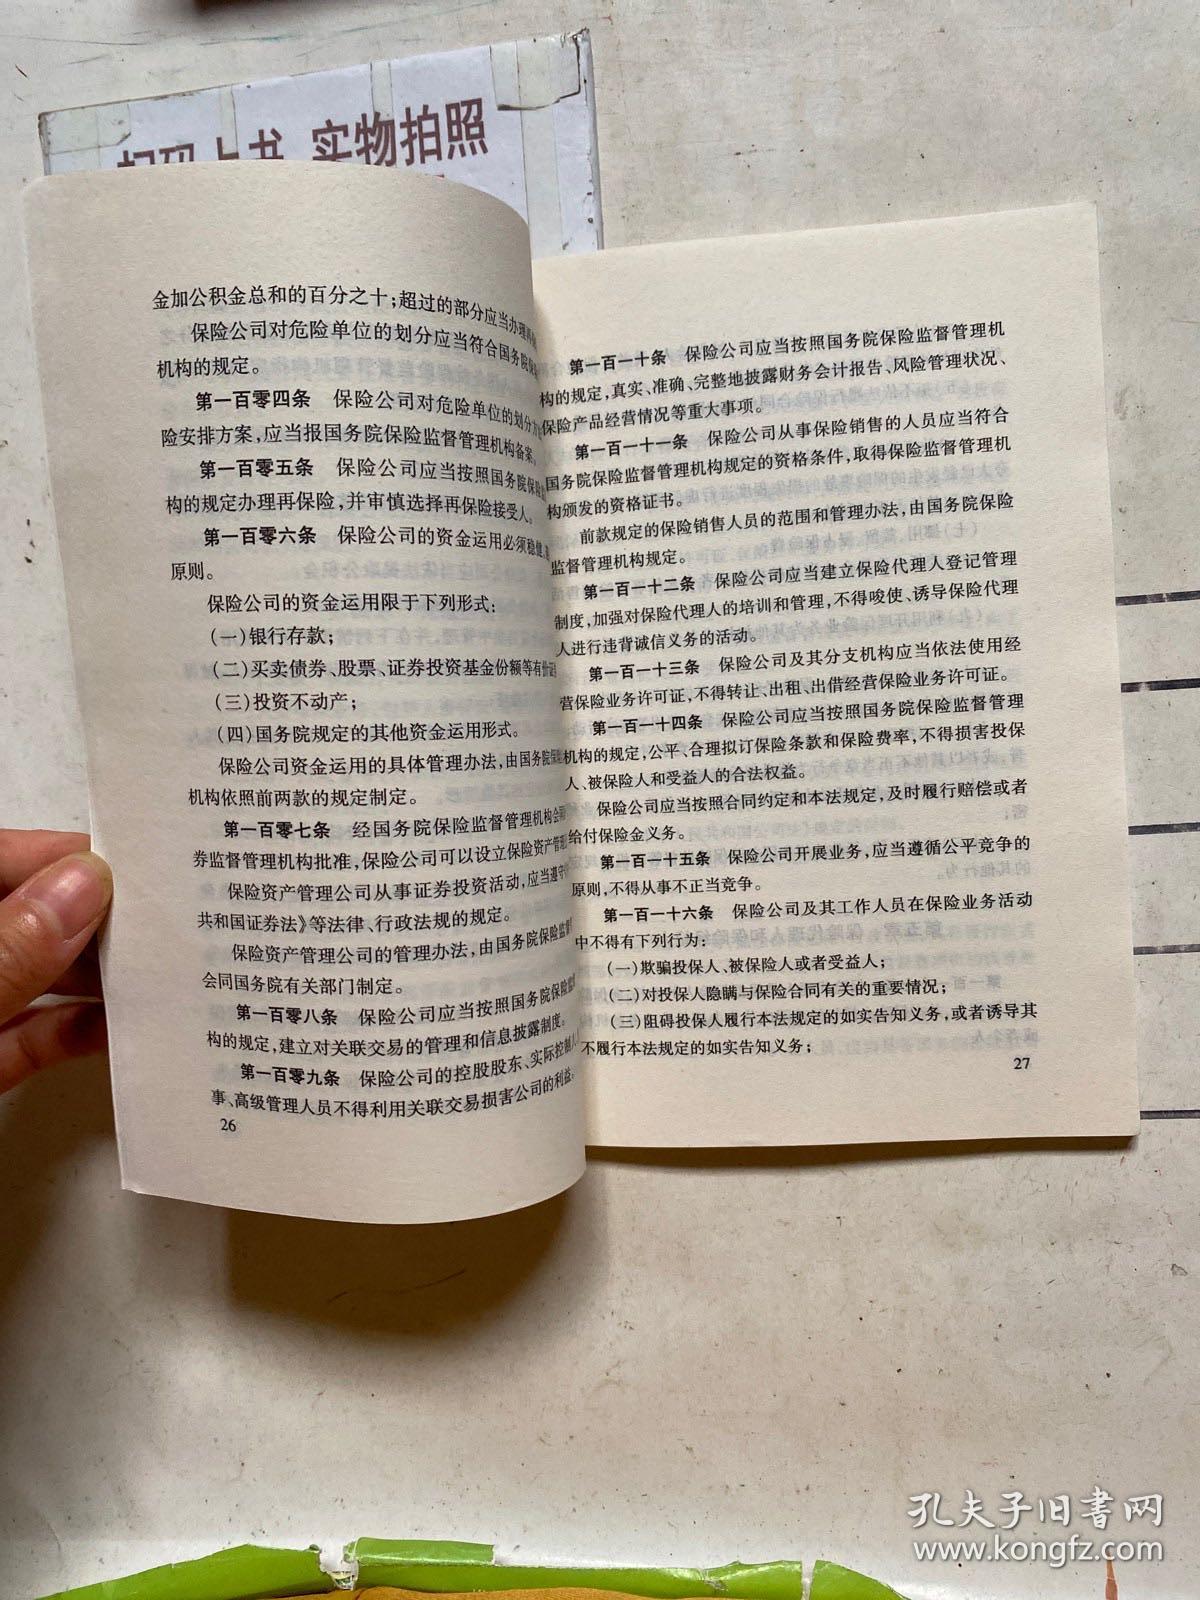 扫码上书 实物拍照
金加公积金总和的百分之十；超过的部分应当办理再
保险公司对危险单位的划分应当符合国务院保
机构的规定。
第一百零四条 保险公司对危险单位的划分方
险安排方案，应当报国务院保险监督管理机构备案。
第一百零五条 保险公司应当按照国务院保险
构的规定办理再保险，并审慎选择再保险接受人。
第一百零六条 保险公司的资金运用必须稳健，
原则。
保险公司的资金运用限于下列形式：
（一）银行存款；
（二）买卖债券、股票、证券投资基金份额等有价证
（三）投资不动产；
（四）国务院规定的其他资金运用形式。
保险公司资金运用的具体管理办法，由国务院保险
机构依照前两款的规定制定。
第一百零七条 经国务院保险监督管理机构会同
券监督管理机构批准，保险公司可以设立保险资产管理
保险资产管理公司从事证券投资活动，应当遵守
共和国证券法》等法律、行政法规的规定。
保险资产管理公司的管理办法，由国务院保险监督
会同国务院有关部门制定。
第一百零八条 保险公司应当按照国务院保险监
构的规定，建立对关联交易的管理和信息披露制度。
第一百零九条 保险公司的控股股东、实际控制人、
事、高级管理人员不得利用关联交易损害公司的利益。
26
第一百一十条 保险公司应当按照国务院保险监督管理机
构的规定，真实、准确、完整地披露财务会计报告、风险管理状况、
保险产品经营情况等重大事项。
第一百一十一条 保险公司从事保险销售的人员应当符合
国务院保险监督管理机构规定的资格条件，取得保险监督管理机
构颁发的资格证书。
前款规定的保险销售人员的范围和管理办法，由国务院保险
监督管理机构规定。
第一百一十二条 保险公司应当建立保险代理人登记管理
制度，加强对保险代理人的培训和管理，不得唆使、诱导保险代理
人进行违背诚信义务的活动。
第一百一十三条 保险公司及其分支机构应当依法使用经
营保险业务许可证，不得转让、出租、出借经营保险业务许可证。
第一百一十四条 保险公司应当按照国务院保险监督管理
机构的规定，公平、合理拟订保险条款和保险费率，不得损害投保
人、被保险人和受益人的合法权益。
保险公司应当按照合同约定和本法规定，及时履行赔偿或者
给付保险金义务。
第一百一十五条 保险公司开展业务，应当遵循公平竞争的
原则，不得从事不正当竞争。
第一百一十六条 保险公司及其工作人员在保险业务活动
中不得有下列行为：
（一）欺骗投保人、被保险人或者受益人；
（二）对投保人隐瞒与保险合同有关的重要情况；
（三）阻碍投保人履行本法规定的如实告知义务，或者诱导其
不履行本法规定的如实告知义务；
27
孔夫子旧书网
www.kongfz.com